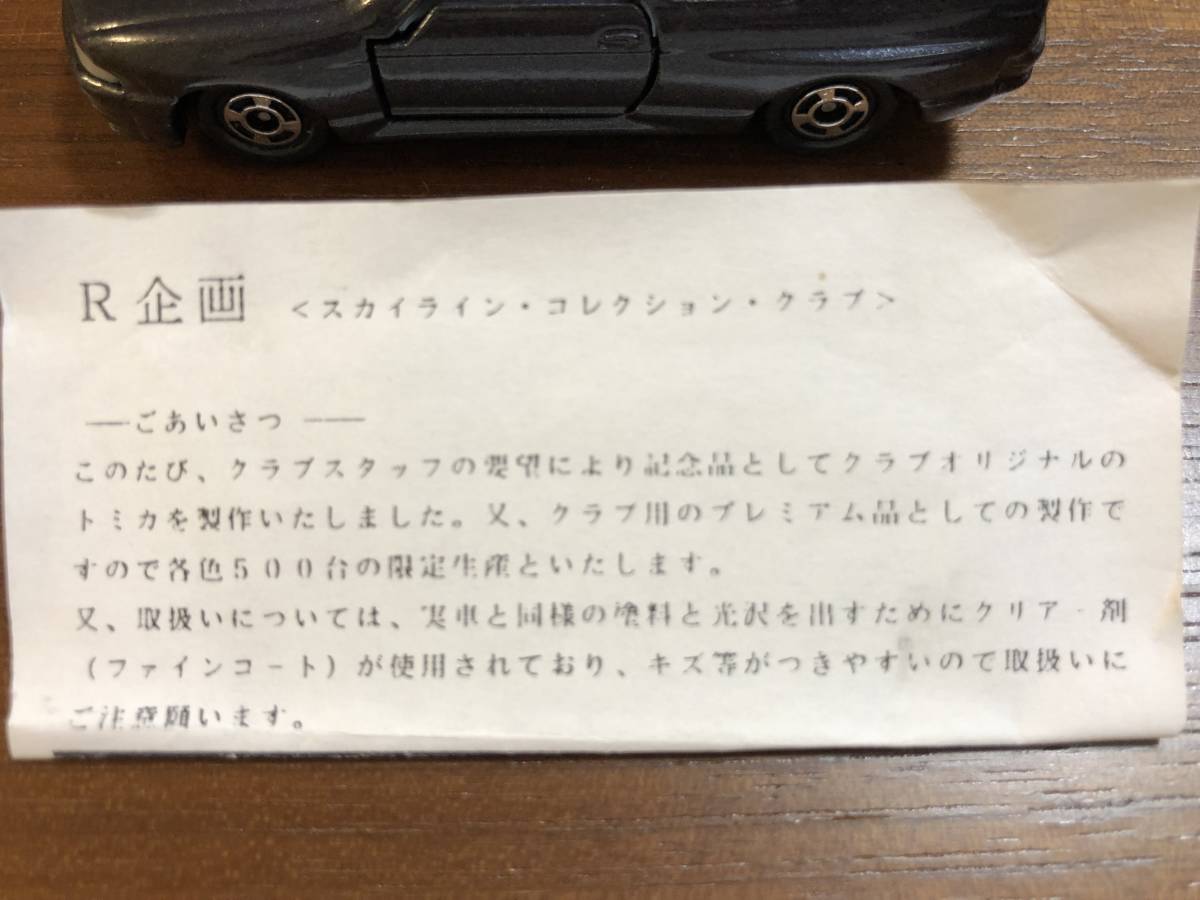 R企画 <スカイライン・コレクション・クラブ>
――ごあいさつ――
このたび、クラブスタッフの要望により記念品としてクラブオリジナルの
トミカを製作いたしました。又、クラブ用のプレミアム品としての製作で
すので各色500台の限定生産といたします。
又、取扱いについては、実車と同様の塗料と光沢を出すためにクリアー剤
(ファインコート)が使用されており、キズ等がつきやすいので取扱いに
ご注意願います。